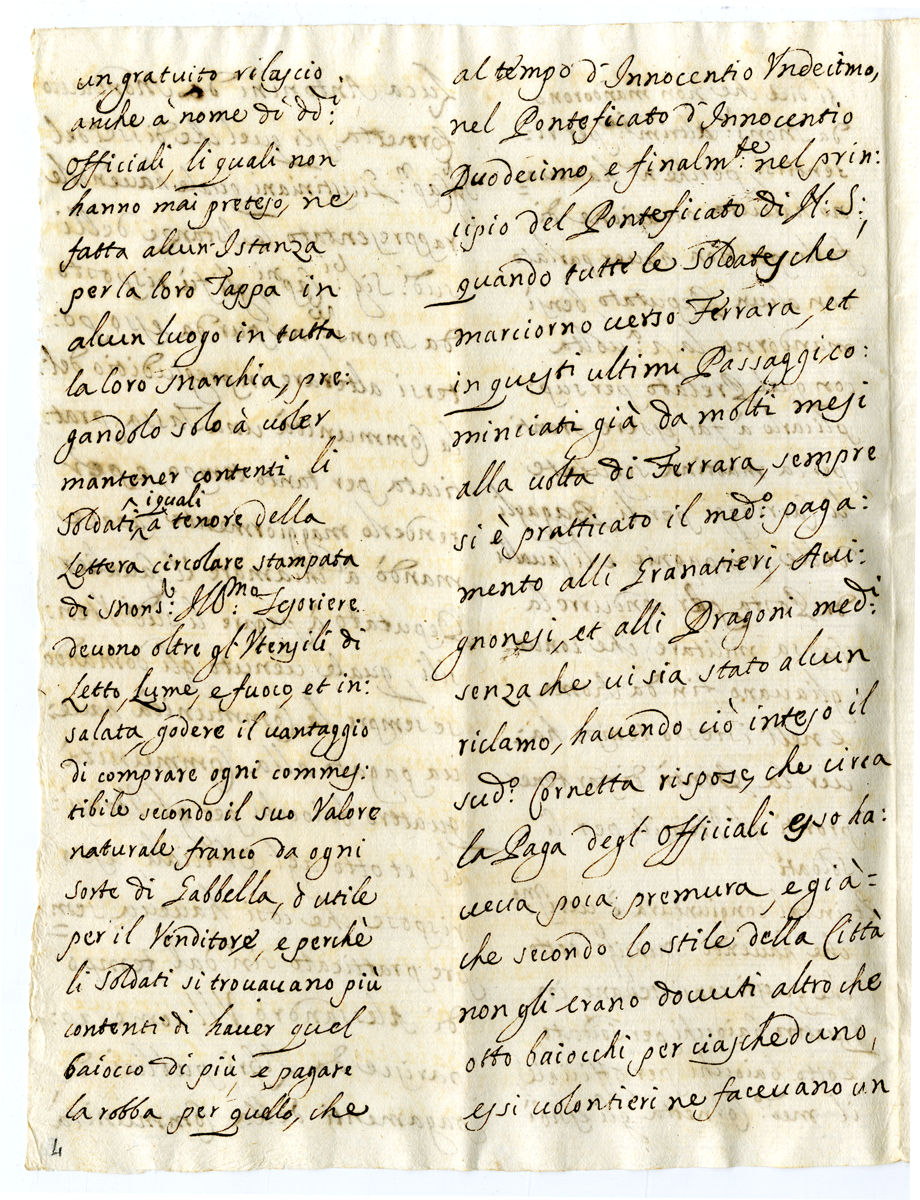 un gratuito rilascio
anche à nome di dd:i
Officiali, li quali non
hanno mai preteso, ne
fatta alcun Istanza
per la loro Tappa in
alcun luogo in tutta
la loro Marchia, pre:
gandolo solo à voler
mantener contenti li
Soldati, i quali à tenore della
Lettera circolare stampata
di Mons:r Ill:mo Tesoriere
devono oltre gl'Utensili di
Letto, Lume, e fuoco, et in:
salata, godere il vantaggio
di comprare ogni commes:
tibile secondo il suo Valore
naturale, franco da ogni
sorte di Gabbella, ò utile
per il Venditore, e perchè
li Soldati si trovavano più
contenti di haver quel
baiocco di più, e pagare
la robba per quello, che
al tempo d'Innocentio Undecimo,
nel Ponteficato d'Innocentio
Duodecimo, e finalm:te nel prin:
cipio del Ponteficato di N: S:,
quando tutte le Soldatesche
marciorno verso Ferrara, et
in questi ultimi Passaggi, co:
minciati già da molti mesi
alla volta di Ferrara, sempre
si è pratticato il med:o paga:
mento alli Granatieri, Avi:
gnonesi, et alli Dragoni med:i
senza che vi sia stato alcun
riclamo, havendo ciò inteso il
sud:o Cornetta rispose, che circa
la Paga degl'Officiali esso ha:
veva poca premura, e già=
che secondo lo stile della Città
non gli erano dovuti altro che
otto baiocchi per ciascheduno,
essi volontieri ne facevano un
4